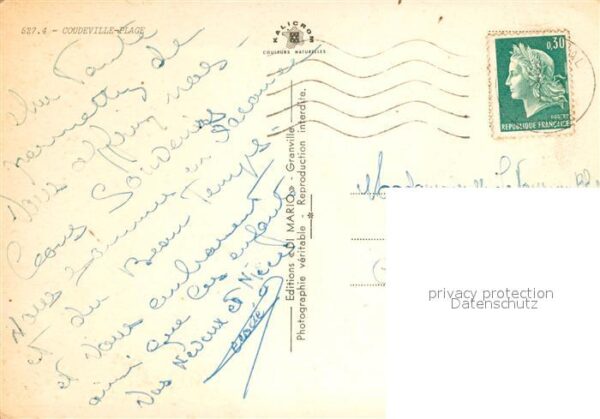 627.4 - COUDEVILLE-PLAGE
KALICROM
COULEURS NATURELLES
0,30
REPUBLIQUE FRANÇAISE
Editions « DI MARIO » - Granville
Photographie véritable - Reproduction interdite.
Une Tante
permettez de
Vous offrir nos
Souvenirs
Nous sommes en Vacances
et du Beau Temps.
et Vous embrassent
ainsi que les enfants
Vos Neveux et Nièces
privacy protection
Datenschutz